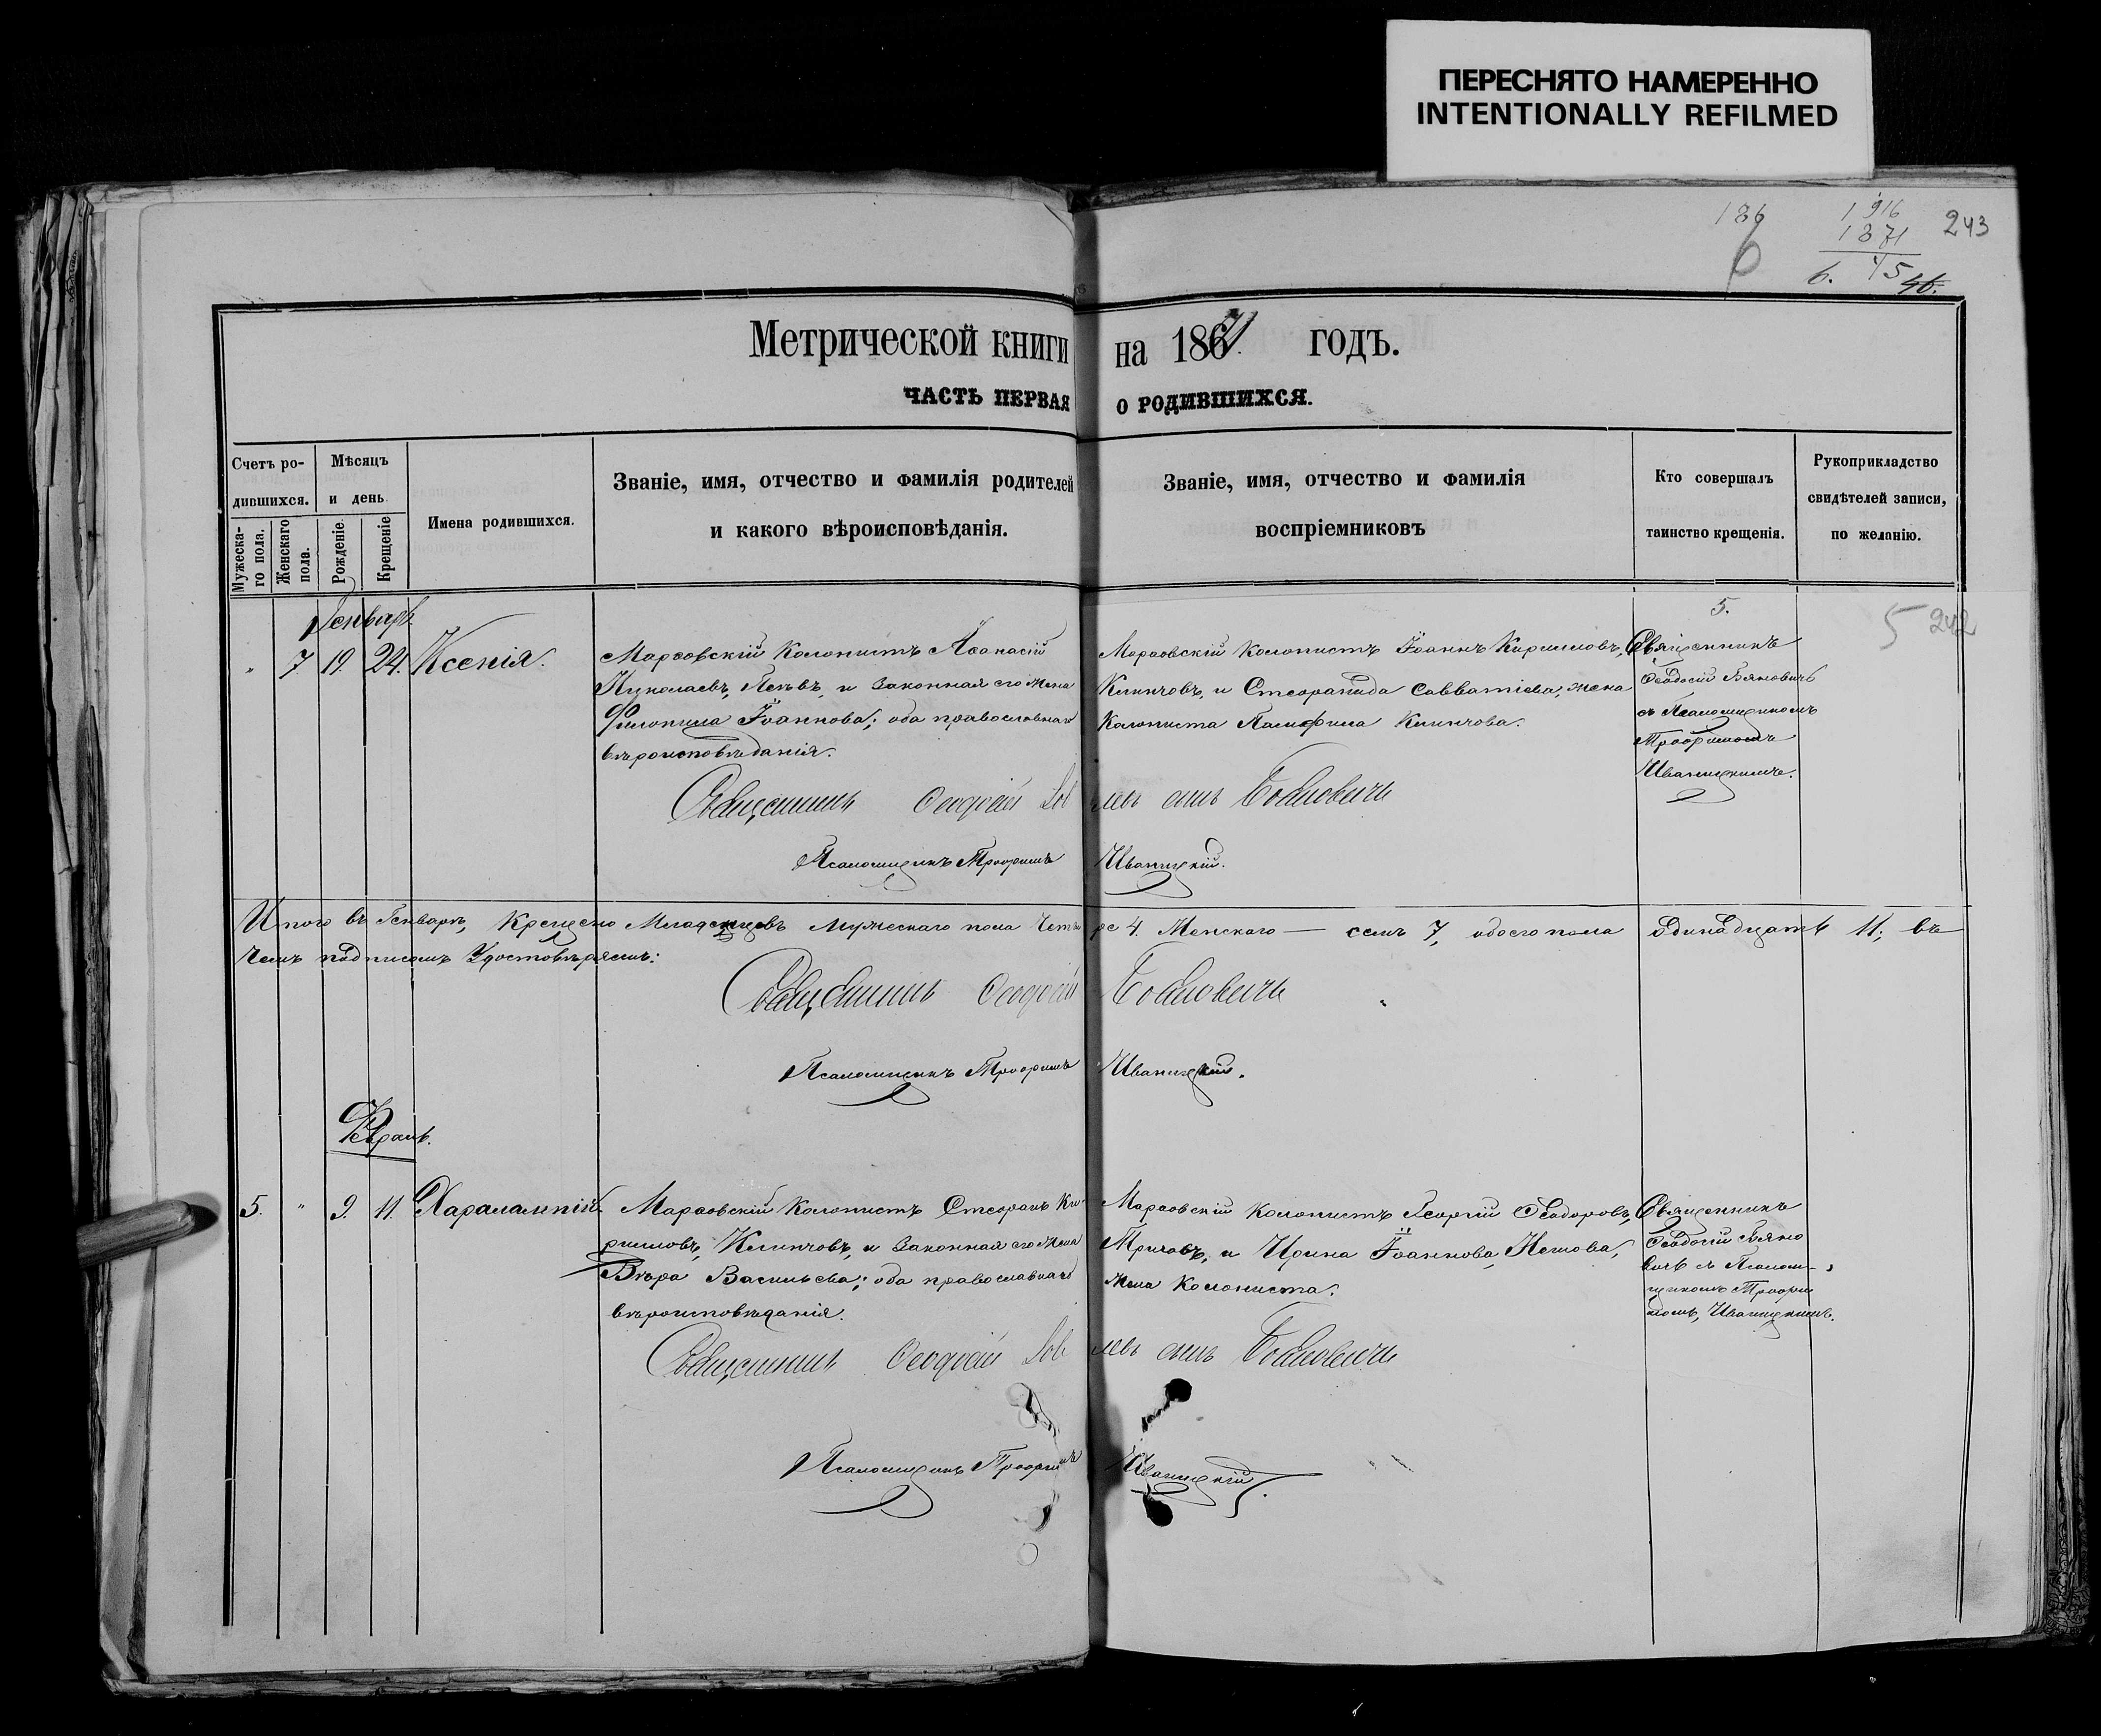 ПЕРЕСНЯТО НАМЕРЕННО
INTENTIONALLY REFILMED
186
1916
1871
45
6.
46.
243
Метрической книги на 1871. годъ.
ЧАСТЬ ПЕРВАЯ О РОДИВШИХСЯ.
Счетъ ро-
дившихся.
Мужеска-
го пола.
Женскаго
пола.
Мѣсяцъ
и день.
Рожденіе.
Крещеніе
Имена родившихся.
Званіе, имя, отчество и фамилія родителей
и какого вѣроисповѣданія.
Званіе, имя, отчество и фамилія
воспріемниковъ
Кто совершалъ
таинство крещенія.
Рукоприкладство
свидѣтелей записи,
по желанію.
Генварь
5.
5 242
" 7. 19. 24. Ксенія.
Колонистъ Аѳанасій
Николаевъ, и законная его жена
Іоаннова; оба православнаго
вѣроисповѣданія.
Колонистъ Іоаннъ Кирилловъ,
Клинчовъ, и Стефанида Савватіева, жена
Колониста Памфила Клинчова.
Священникъ
Ѳеодосій
съ Псаломщикомъ
Трофимомъ
Иваницкимъ.
Священникъ Ѳеодосій
Псаломщикъ Трофимъ Иваницкій.
Итого въ Генварѣ, Крещено Младенцевъ Мужескаго пола Четыре 4. Женскаго — семь 7, обоего пола Одинадцать 11; въ
чемъ подписомъ Удостовѣряемъ:
Священникъ Ѳеодосій
Псаломщикъ Трофимъ Иваницкій.
Февраль.
5. " 9. 11. Харалампій.
Колонистъ Стефанъ Ки-
рилловъ, Клинчовъ, и законная его жена
Вѣра Васильева; оба православнаго
вѣроисповѣданія.
Колонистъ Георгій Ѳеодоровъ,
и Ирина Іоаннова,
жена Колониста.
Священникъ
Ѳеодосій
съ Псалом-
щикомъ Трофи
момъ, Иваницкимъ.
Священникъ Ѳеодосій
Псаломщикъ Трофимъ Иваницкій.